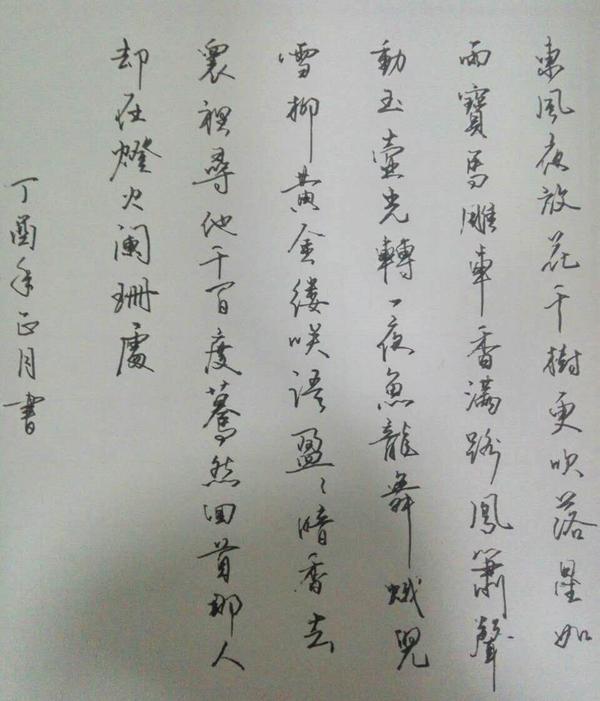 東風夜放花千樹更吹落星如
雨寶馬雕車香滿路鳳簫聲
動玉壺光轉一夜魚龍舞蛾兒
雪柳黄金縷咲語盈〻暗香去
衆裡尋他千百度驀然回首那人
却在燈火闌珊處
丁酉年正月書